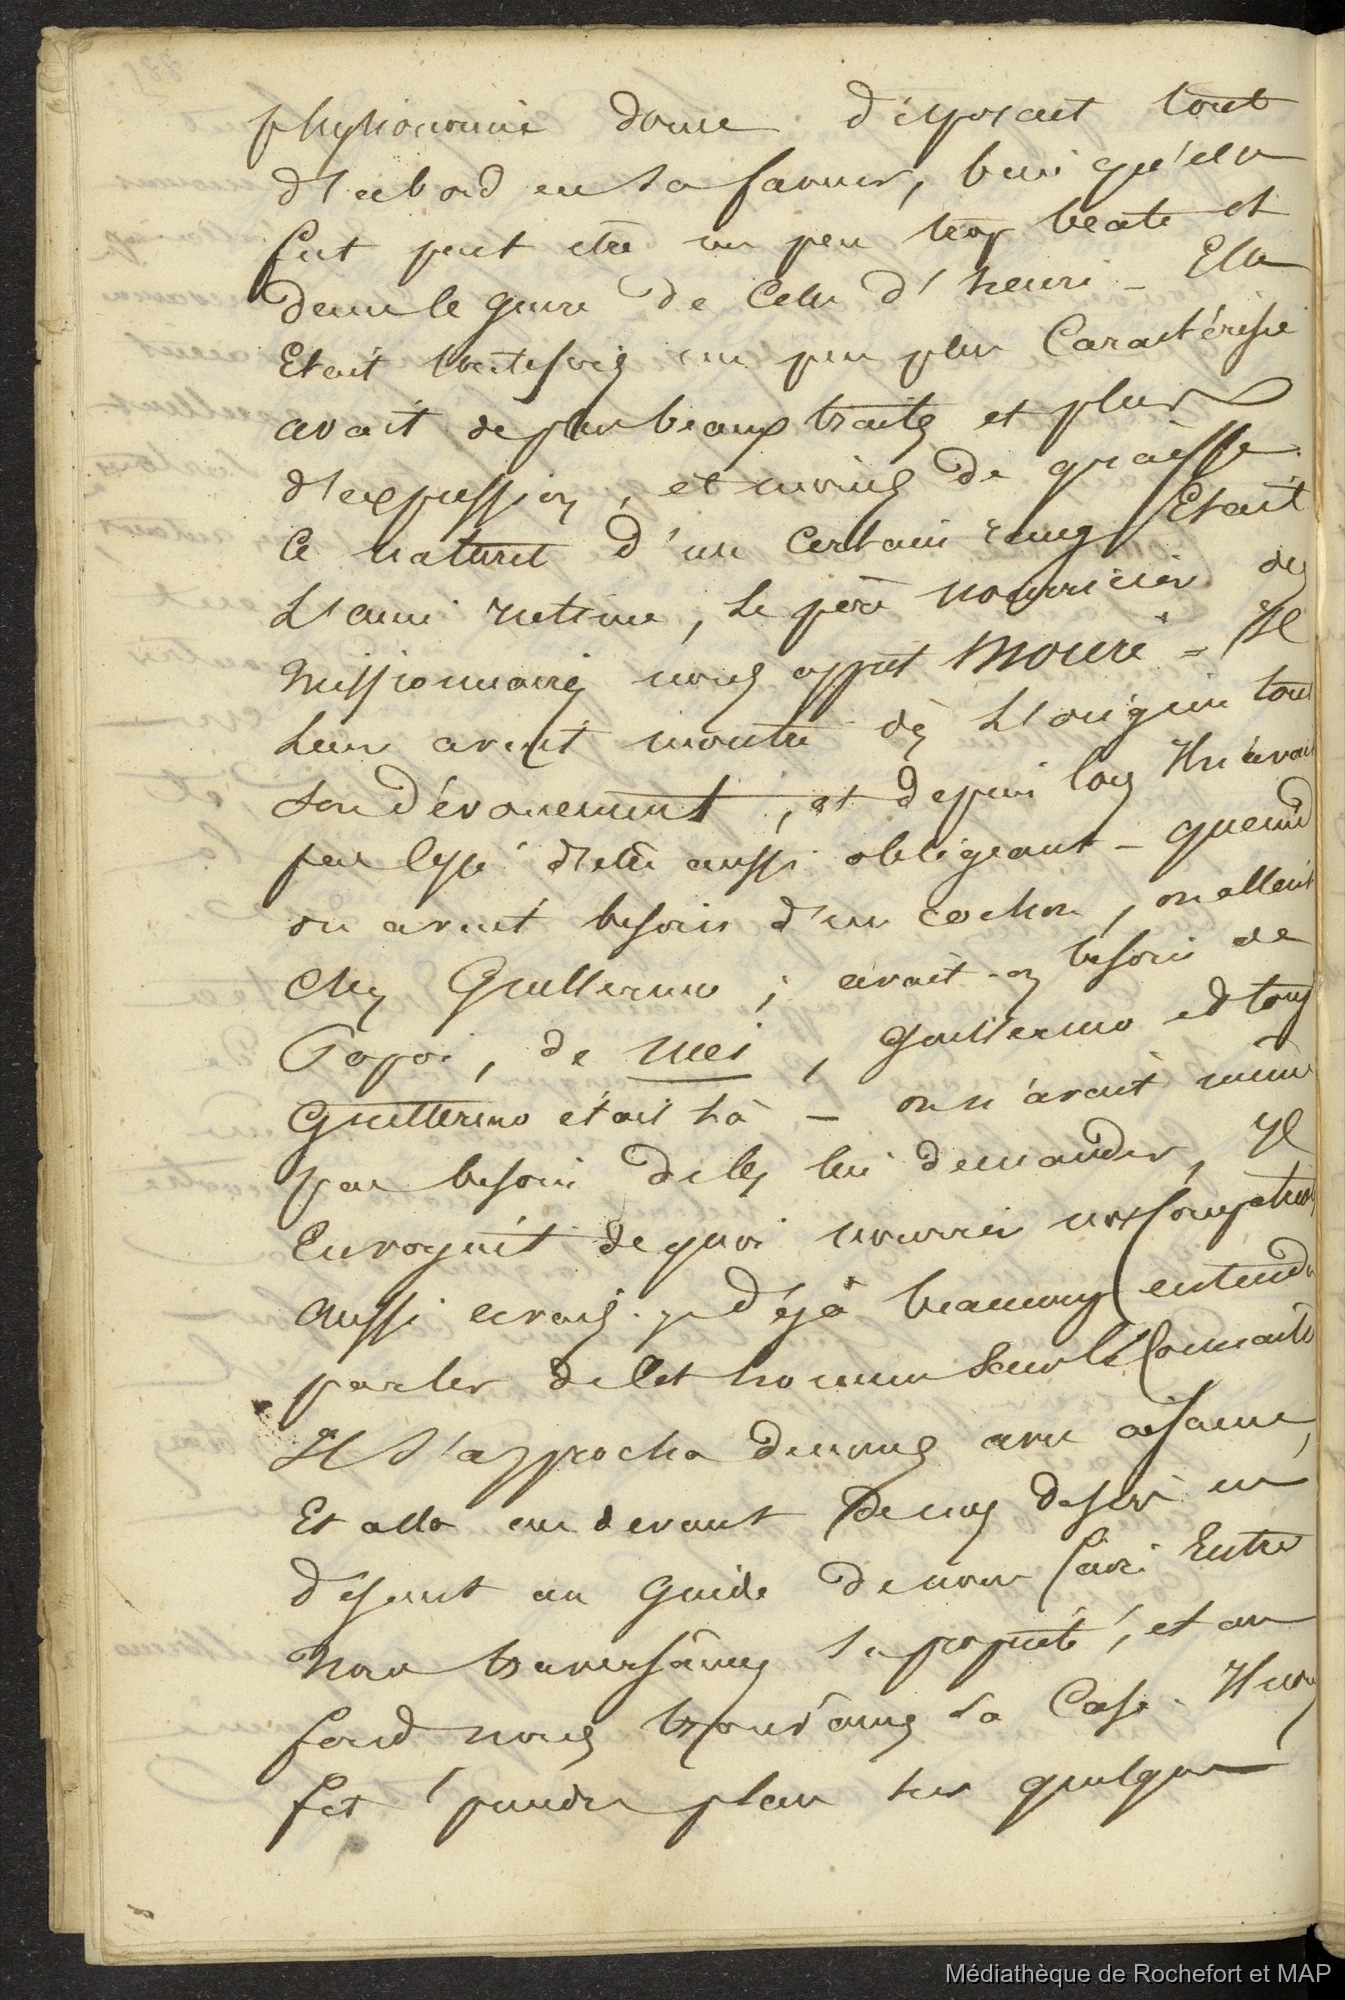 physionomie douce disposait tout
d'abord en sa faveur, bien qu'elle
fut peut etre un peu trop beate et
dans le genre de celle d'henri _ Elle
Etait toutefois un peu plus Caractérisée
avait de plus beaux traits et plus
d'expression, et moins de graisse.
Ce naturel d'un certain rang Etait
L'ami intime, le père nourricier des
missionnaires nous apprit Mouré = Il
leur avait montré dès L'origine tout
son dévouement, et depuis lors Il n'avait
pas cessé d'etre aussi obligeant _ quand
on avait besoin d'un cochon, on allait
chez Guillermo ; avait-on besoin de
Popoi, de mei, Guillermo et touj
Guillermo était là _ on n'avait même
pas besoin de les lui demander, Il
Envoyait de quoi nourrir
aussi avais-je déjà beaucoup entendu
parler de cet homme sans le Connaître
Il s'approcha de nous avec aisance,
Et alla au devant de nos desirs en
disant au guide de nous faire Entrer
Nous traversâmes sa propriété, et au
fond nous trouvâmes la Case. Il nous
fit prendre place sur quelques
Médiathèque de Rochefort et MAP